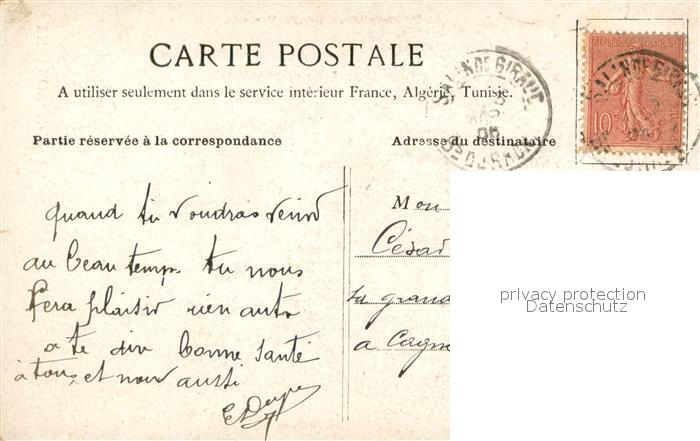 CARTE POSTALE
A utiliser seulement dans le service intérieur France, Algérie, Tunisie.
Partie réservée à la correspondance
Adresse du destinataire
RÉPUBLIQUE FRANÇAISE
10c
SALIN DE GIRAUD
Bs DU RHONE
quand tu voudras venir
au beau temps tu nous
fera plaisir rien autr
a te dire bonne santé
à tous, et nous aussi
Mon
César
la grand
a Cagn
privacy protection
Datenschutz